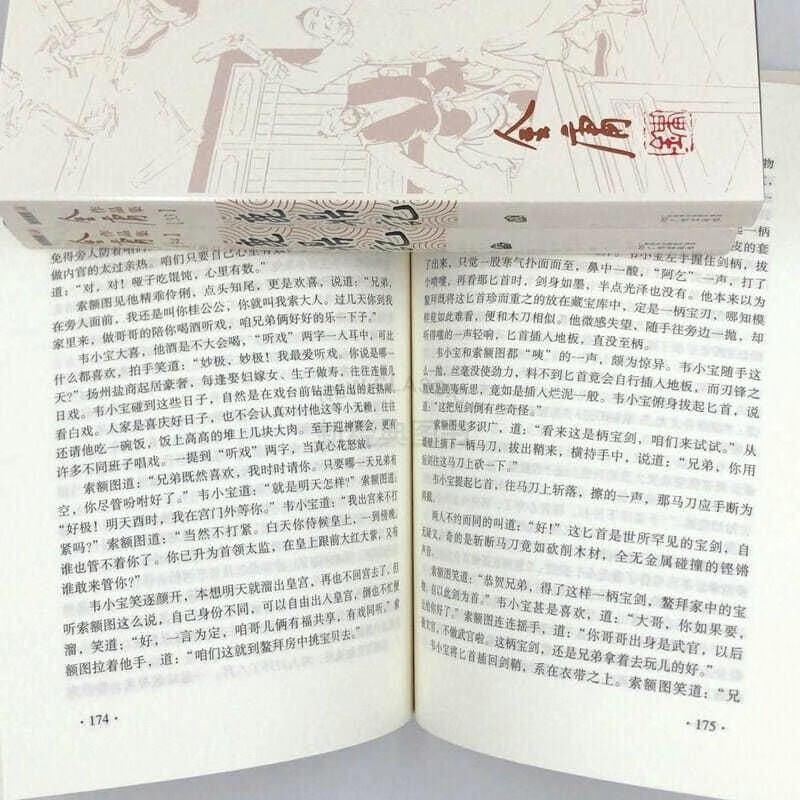 金庸
金庸
作品集
鹿鼎记
金庸
作品集
鹿鼎记
免得旁人防着咱们。咱们只要自己心里有
做内官的太过亲热。
道:“对,对!哑子吃馄饨,心里有数。”
索额图见他精乖伶俐,点头知尾,更是欢喜,说道:“兄弟,
在旁人面前,我还是叫你桂公公,你就叫我索大人。过几天你到我
家里来,做哥哥的陪你喝酒听戏,咱兄弟俩好好的乐一下子。”
韦小宝大喜,他酒是不大会喝,“听戏”两字一入耳中,可比
什么都喜欢,拍手笑道:“妙极,妙极!我最爱听戏。你说是哪一
天?”扬州盐商起居豪奢,每逢娶妇嫁女、生子做寿,往往连做几
日戏。韦小宝碰到这些日子,自然是在戏台前钻进钻出的赶热闹,
看白戏。人家是喜庆好日子,也不会认真对付他这等小无赖,往往
还请他吃一碗饭,饭上高高的堆上几块大肉。至于迎神赛会,更有
许多不同班子唱戏。一提到“听戏”两字,当真心花怒放。
索额图道:“兄弟既然喜欢,我时时请你。只要哪一天兄弟有
空,你尽管吩咐好了。”韦小宝道:“就是明天怎样?”索额图道:
“好极!明天酉时,我在宫门外等你。”韦小宝道:“我出宫来不打
紧吗?”索额图道:“当然不打紧。白天你侍候皇上,一到傍晚,
谁也管不着你了。你已升为首领太监,在皇上跟前大红大紫,又有
谁敢来管你?”
韦小宝笑逐颜开,本想明天就溜出皇宫,再也不回宫去了,但
听索额图这么说,自己身份不同,可以自由出入皇宫,倒也不忙便
溜,笑道:“好,一言为定,咱哥儿俩有福共享,有戏同听。”索
额图拉着他手,道:“咱们这就到鳌拜房中挑宝贝去。”
·174·
物
一柄
皮的套
韦小宝左手握住剑柄,
了出来,只觉一股寒气扑面而至,鼻中一酸,“阿乞”一声,打了
个喷嚏,再看那匕首时,剑身如墨,半点光泽也没有。他本来以为
鳌拜既将这匕首珍而重之的放在藏宝库中,定是一柄宝刃,哪知模
样竟如此难看,便和木刀相似。他微感失望,随手往旁边一抛,却
听得嗤的一声轻响,匕首插入地板,直没至柄。
韦小宝和索额图都“咦”的一声,颇为惊异。韦小宝随手这
么一抛,丝毫没使劲力,料不到匕首竟会自行插入地板,而刃锋之
利更是匪夷所思,竟如是插入烂泥一般。韦小宝俯身拔起匕首,说
道:“这把短剑倒有些奇怪。”
索额图见多识广,道:“看来这是柄宝剑,咱们来试试。”从
墙壁上摘下一柄马刀,拔出鞘来,横持手中,说道:“兄弟,你用
短剑往这马刀上砍一下。”
韦小宝提起匕首,往马刀上斩落,擦的一声,那马刀应手断为
两截。
两人不约而同的叫道:“好!”这匕首是世所罕见的宝剑,自
无疑义,奇的是斩断马刀竟如砍削木材,全无金属碰撞的铿锵
声音。
索额图笑道:“恭贺兄弟,得了这样一柄宝剑,鳌拜家中的宝
物,自以此剑为首。”韦小宝甚是喜欢,道:“大哥,你如果要,
让给你好了。”索额图连连摇手,道:“你哥哥出身是武官,以后
做文官,不做武官啦。这柄宝剑,还是兄弟拿着去玩儿的好。”
韦小宝将匕首插回剑鞘,系在衣带之上。索额图笑道:“兄
·175·